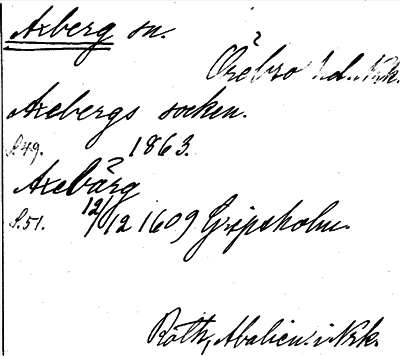 Axberg sn.
Örebro hd. Nrk.
Axebergs socken.
S.49. 1863.
Axebärg
S.51. 12/12 1609 Gripsholm.
Roth, Abalien. i Nrk.